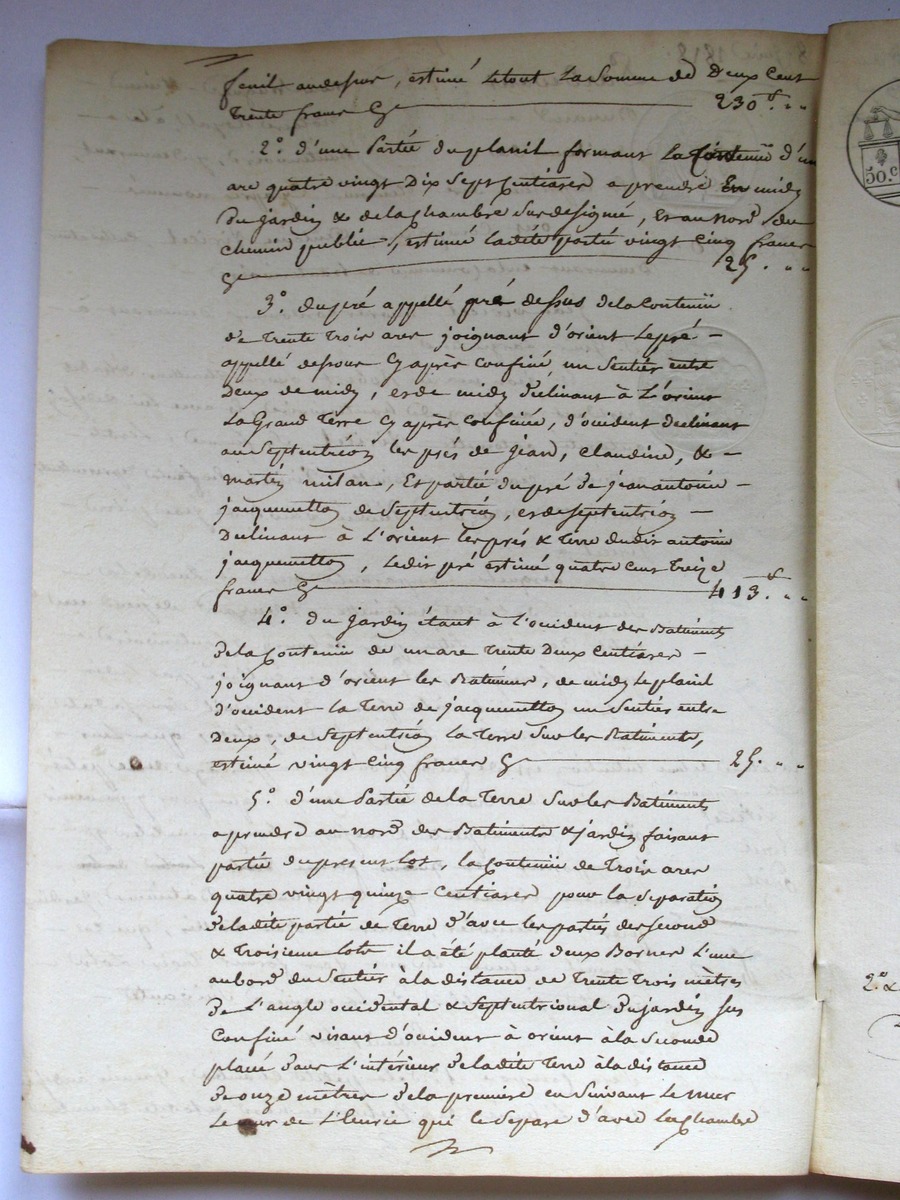 fenil audessus, estimé letout la somme de Deux Cent
Trente francs Cy 230.f " "
2.° d'une Partie du planil formant la Contenüe d'un
are quatre vingt Dix Sept Centiares a prendre En midy
Du jardin & de la chambre Sus designée, Et au nord du
chemin public, estimée ladite partie vingt Cinq francs
Cy 25. " "
3.° du pré appellé pré dessus de la Contenüe
de Trente Trois ares joignant d'orient Le pré
appellé dessous Cy après confiné, un Sentier entre
Deux de midy, et de midy déclinant à L'orient
La Grand Terre Cy après Confinée, d'occident déclinant
au Septentrion les prés de jean, Claudine, &
martin milan, Et partie du pré de jean antoine
jacquemetton de Septentrion, et de septentrion
Déclinant à L'orient les prés & Terre dudit antoine
jacquemetton, Ledit pré estimé quatre Cent Treize
francs Cy 413.f " "
4.° du jardin étant à l'occident des Batiments
de la Contenüe de un are Trente Deux Centiares
joignant d'orient les Batiments, de midy Le planil
d'occident la Terre de jacquemetton un Sentier entre
Deux, de Septentrion la Terre Sur les Batiments,
estimé vingt Cinq francs Cy 25. " "
5.° d'une Partie de la Terre Sur les Batiments
a prendre au nord des Batiments & jardin faisant
partie du présent Lot, la Contenüe de Trois ares
quatre vingt quinze Centiares pour la Separation
de ladite partie de Terre d'avec les parties des Second
& Troisieme lots il a été planté deux Bornes L'une
au bord du Sentier à la distance de Trente Trois mètres
de L'angle occidental & Septentrional du jardin Sus
Confiné visant d'occident à orient à la Seconde
placée dans L'intérieur de ladite Terre à la distance
de onze mètres de la première en Suivant Le mur
Le mur de L'Ecurie qui le Separe d'avec la Chambre
50.c
2.° &